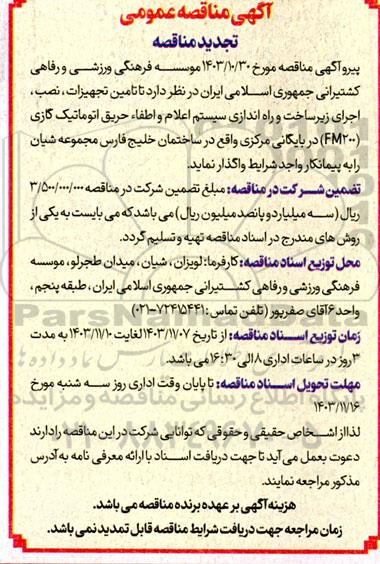 آگهی مناقصه عمومی
تجدید مناقصه
پیرو آگهی مناقصه مورخ ۱۴۰۳/۱۰/۳۰ موسسه فرهنگی ورزشی و رفاهی
کشتیرانی جمهوری اسلامی ایران در نظر دارد تا تامین تجهیزات، نصب،
اجرای زیرساخت و راه اندازی سیستم اعلام و اطفاء حریق اتوماتیک گازی
(FM۲۰۰) در بایگانی مرکزی واقع در ساختمان خلیج فارس مجموعه شیان
را به پیمانکار واجد شرایط واگذار نماید.
تضمین شرکت در مناقصه: مبلغ تضمین شرکت در مناقصه ۳/۵۰۰/۰۰۰/۰۰۰
ریال (سه میلیارد و پانصد میلیون ریال) می باشد که می بایست به یکی از
روش های مندرج در اسناد مناقصه تهیه و تسلیم گردد.
محل توزیع اسناد مناقصه: کارفرما: لویزان، شیان، میدان طجرلو، موسسه
فرهنگی ورزشی و رفاهی کشتیرانی جمهوری اسلامی ایران، طبقه پنجم،
واحد ۶ آقای صفرپور (تلفن تماس: ۷۲۴۱۵۴۴۱-۰۲۱)
زمان توزیع اسناد مناقصه: از تاریخ ۱۴۰۳/۱۱/۰۷ لغایت ۱۴۰۳/۱۱/۱۰ به مدت
۳ روز در ساعات اداری ۸ الی ۱۶:۳۰ می باشد.
مهلت تحویل اسناد مناقصه: تا پایان وقت اداری روز سه شنبه مورخ
۱۴۰۳/۱۱/۱۶
لذا از اشخاص حقیقی و حقوقی که توانایی شرکت در این مناقصه را دارند
دعوت بعمل می آید تا جهت دریافت اسناد با ارائه معرفی نامه به آدرس
مذکور مراجعه نمایند.
هزینه آگهی بر عهده برنده مناقصه می باشد.
زمان مراجعه جهت دریافت شرایط مناقصه قابل تمدید نمی باشد.